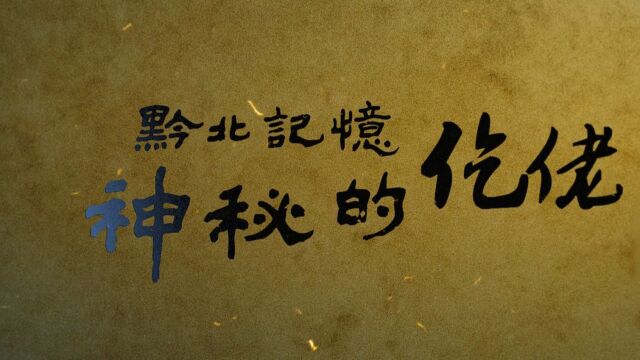 黔北記憶
神秘的仡佬